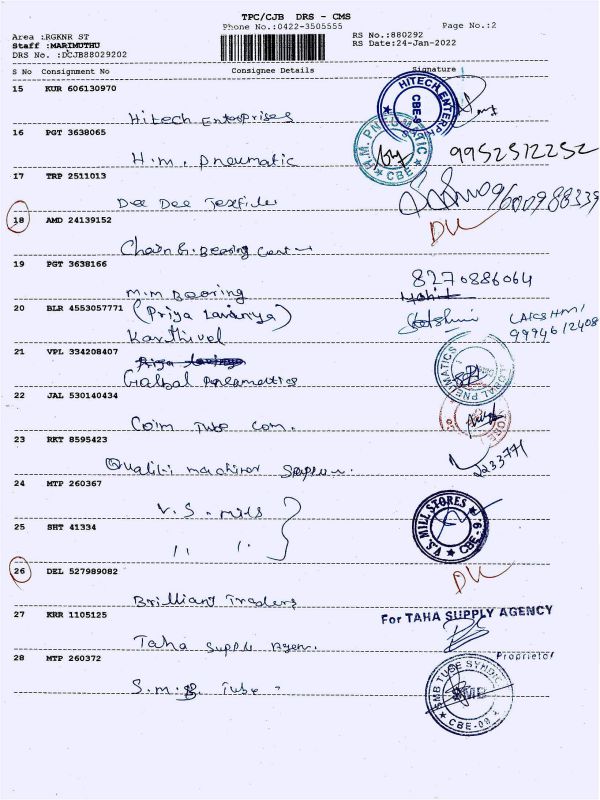 TPC/CJB DRS - CMS
Phone No.:0422-3505555
Page No.:2
Area :RGKNR ST
RS No.:880292
Staff :MARIMUTHU
RS Date:24-Jan-2022
DRS No. :DCJB88029202
S No Consignment No Consignee Details Signature
15 KUR 606130970
Hitech Enterprises
HITECH ENTERPR
CBE-9
16 PGT 3638065
H.M. Pneumatic
H.M. PNEUMATIC
CBE
9952512252
17 TRP 2511013
Dee Dee Textiles
09600988339
18 AMD 24139152
DU
Chain & Bearing Cent
19 PGT 3638166
M.M Bearing
8270886064
Mohit
20 BLR 4553057771
(Priya Lavanya)
Karthival
LAKSHMI
99946 12408
21 VPL 334208407
Galbal Pneumatics
PNEUMATICS
22 JAL 530140434
Coim Tube Com.
23 RKT 8595423
Qualiti machiner Supplier.
2233771
24 MTP 260367
V.S. mills
V.S. MILL STORES
CBE-9.
25 SHT 41334
,, ,,
26 DEL 527989082
DU
Brilliant Traders
27 KRR 1105125
For TAHA SUPPLY AGENCY
Taha Supply Agen.
Proprietor
28 MTP 260372
S.M.B. Tube
SMB TUBE SYNDIC
SMB
CBE-09